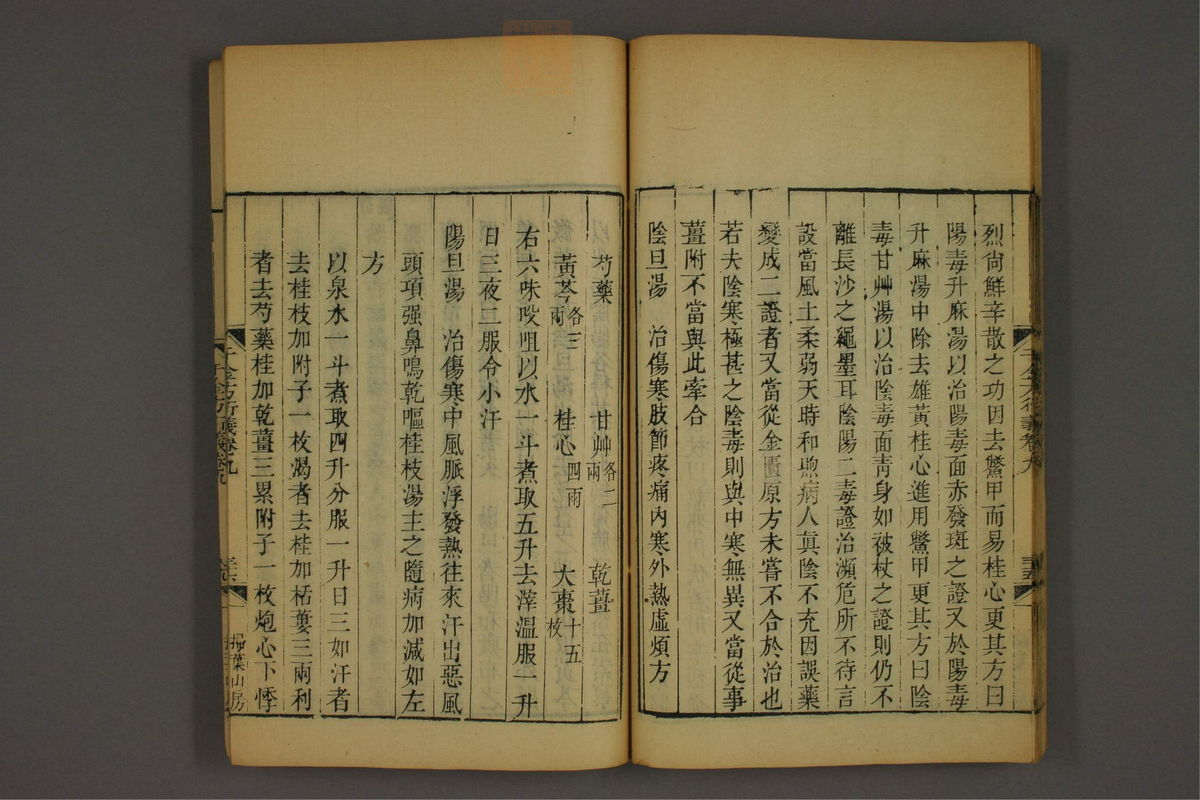 烈尙鮮辛散之功因去鱉甲而易桂心更其方曰
陽毒升麻湯以治陽毒面赤發斑之證又於陽毒
升麻湯中除去雄黃桂心進用鱉甲更其方曰陰
毒甘艸湯以治陰毒面靑身如被杖之證則仍不
離長沙之繩墨耳陰陽二毒證治瀕危所不待言
設當風土柔弱天時和煦病人眞陰不充因誤藥
變成二證者又當從金匱原方未嘗不合於治也
若夫陰寒極甚之陰毒則與中寒無異又當從事
薑附不當與此牽合
陰旦湯 治傷寒肢節疼痛內寒外熱虛煩方
芍藥 甘艸各二兩 乾薑
黃芩各三兩 桂心四兩 大棗十五枚
右六味㕮咀以水一斗煮取五升去滓溫服一升
日三夜二服令小汗
陽旦湯 治傷寒中風脈浮發熱往來汗出惡風
頭項强鼻鳴乾嘔桂枝湯主之隨病加減如左
方
以泉水一斗煮取四升分服一升日三如汗者
去桂枝加附子一枚渴者去桂加栝蔞三兩利
者去芍藥桂加乾薑三累附子一枚炮心下悸
千金方衍義卷九
掃葉山房